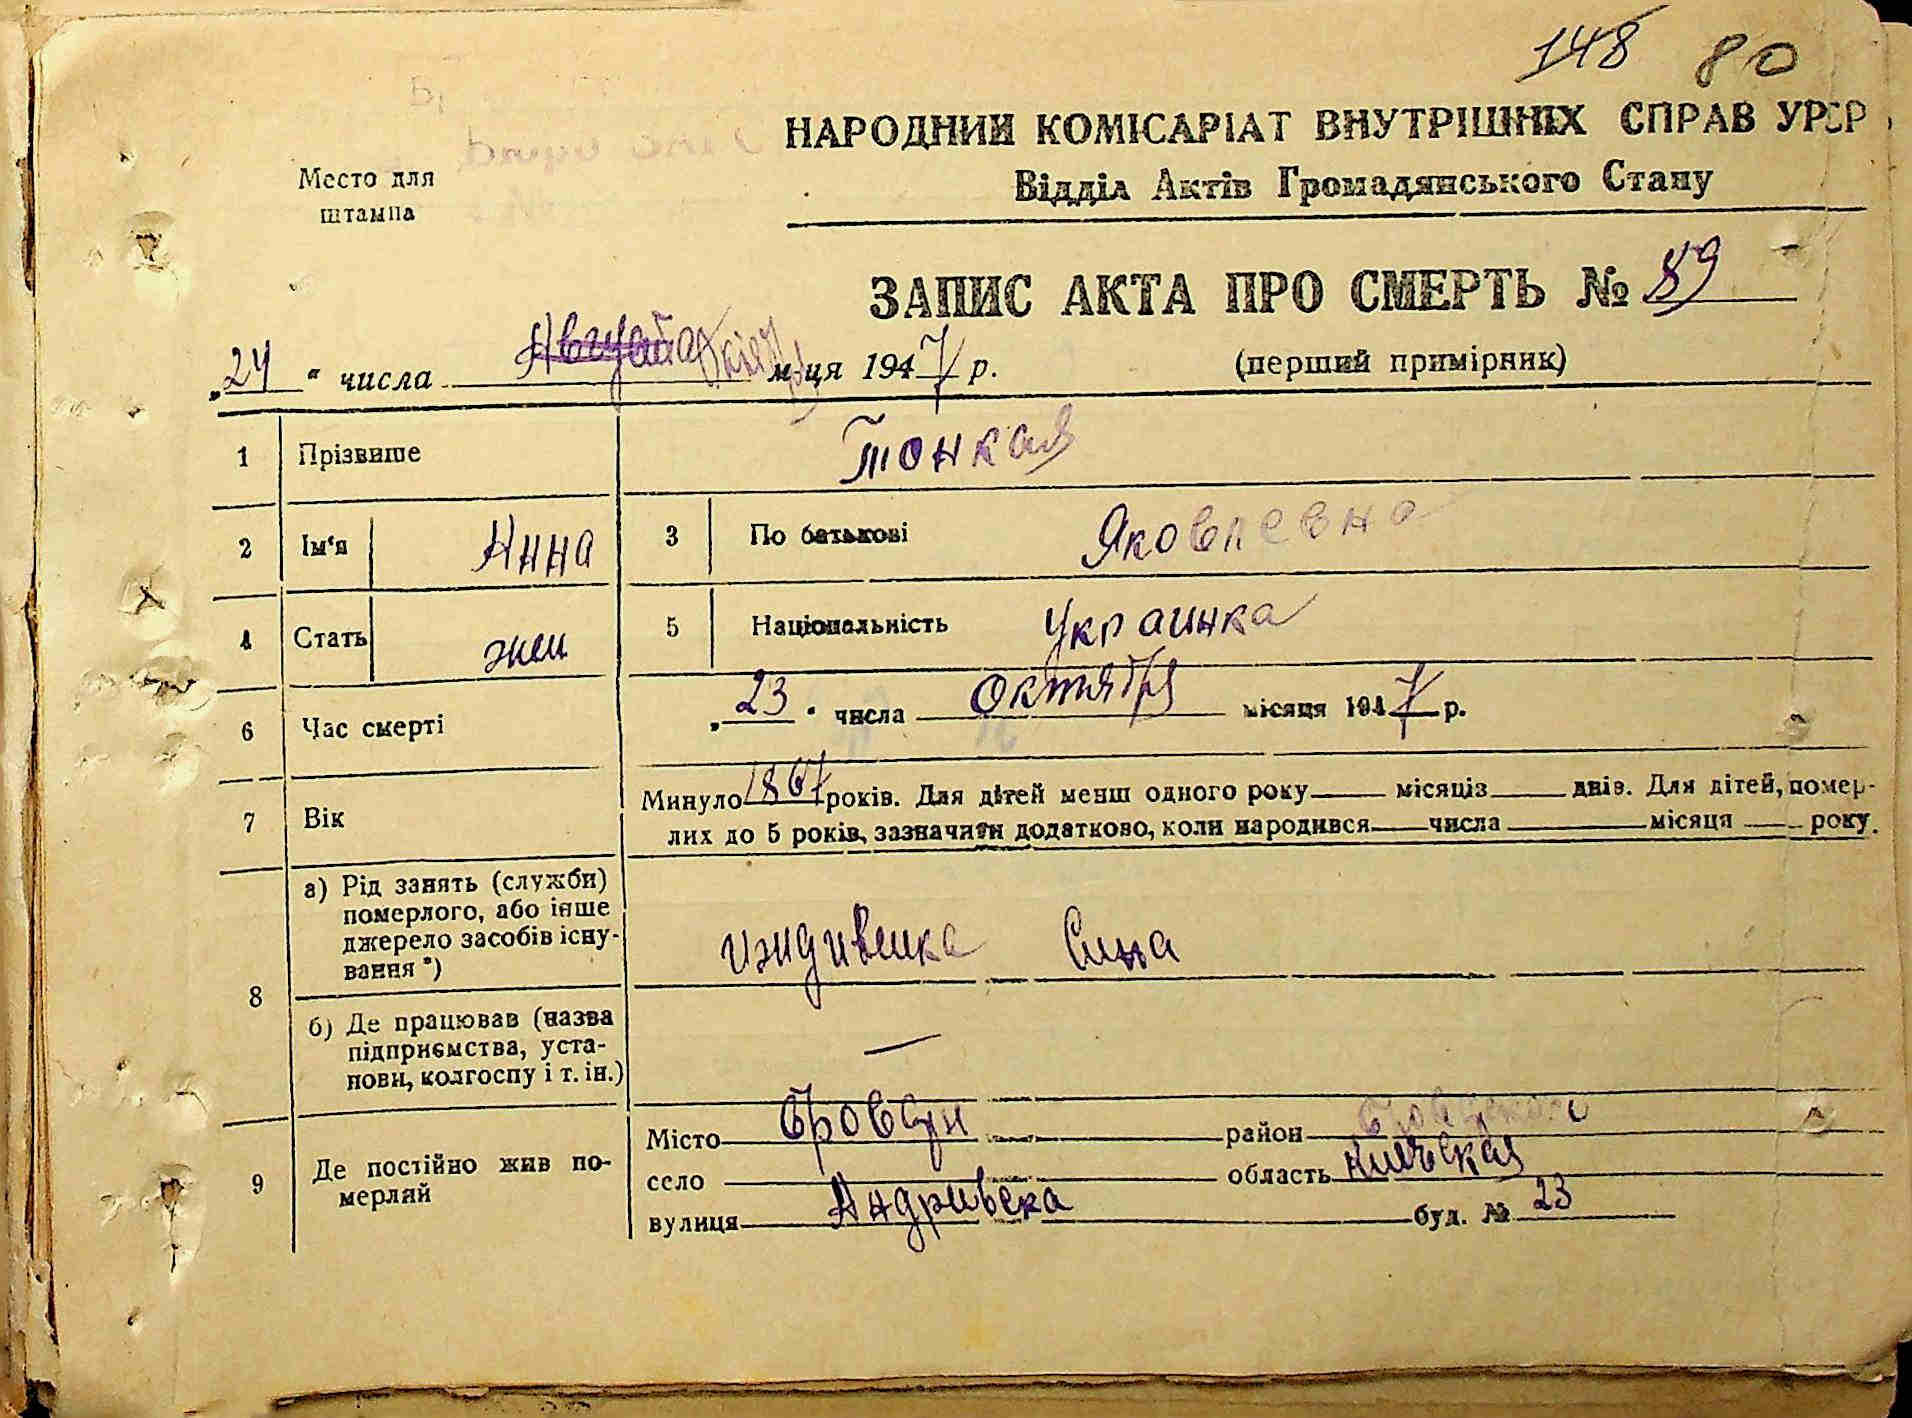 148 80
НАРОДНИЙ КОМІСАРІАТ ВНУТРІШНІХ СПРАВ УРСР
Відділ Актів Громадянського Стану
Место для
штампа
ЗАПИС АКТА ПРО СМЕРТЬ № 89
„24“ числа Августа м-ця 1947 р. (перший примірник)
1 Прізвище Тонкая
2 Ім'я Анна 3 По батькові Яковлевна
4 Стать жен 5 Національність Украинка
6 Час смерті „23“ числа октября місяця 1947 р.
7 Вік Минуло 1867 років. Для дітей менш одного року місяців днів. Для дітей, помер-
лих до 5 років, зазначити додатково, коли народився числа місяця року.
8 а) Рід занять (служби)
померлого, або інше
джерело засобів існу-
вання *) иждивенка Сына
б) Де працював (назва
підприємства, уста-
нови, колгоспу і т. ін.) —
9 Де постійно жив по-
мерлий
Місто Бровары район
село область Киевская
вулиця буд. № 23